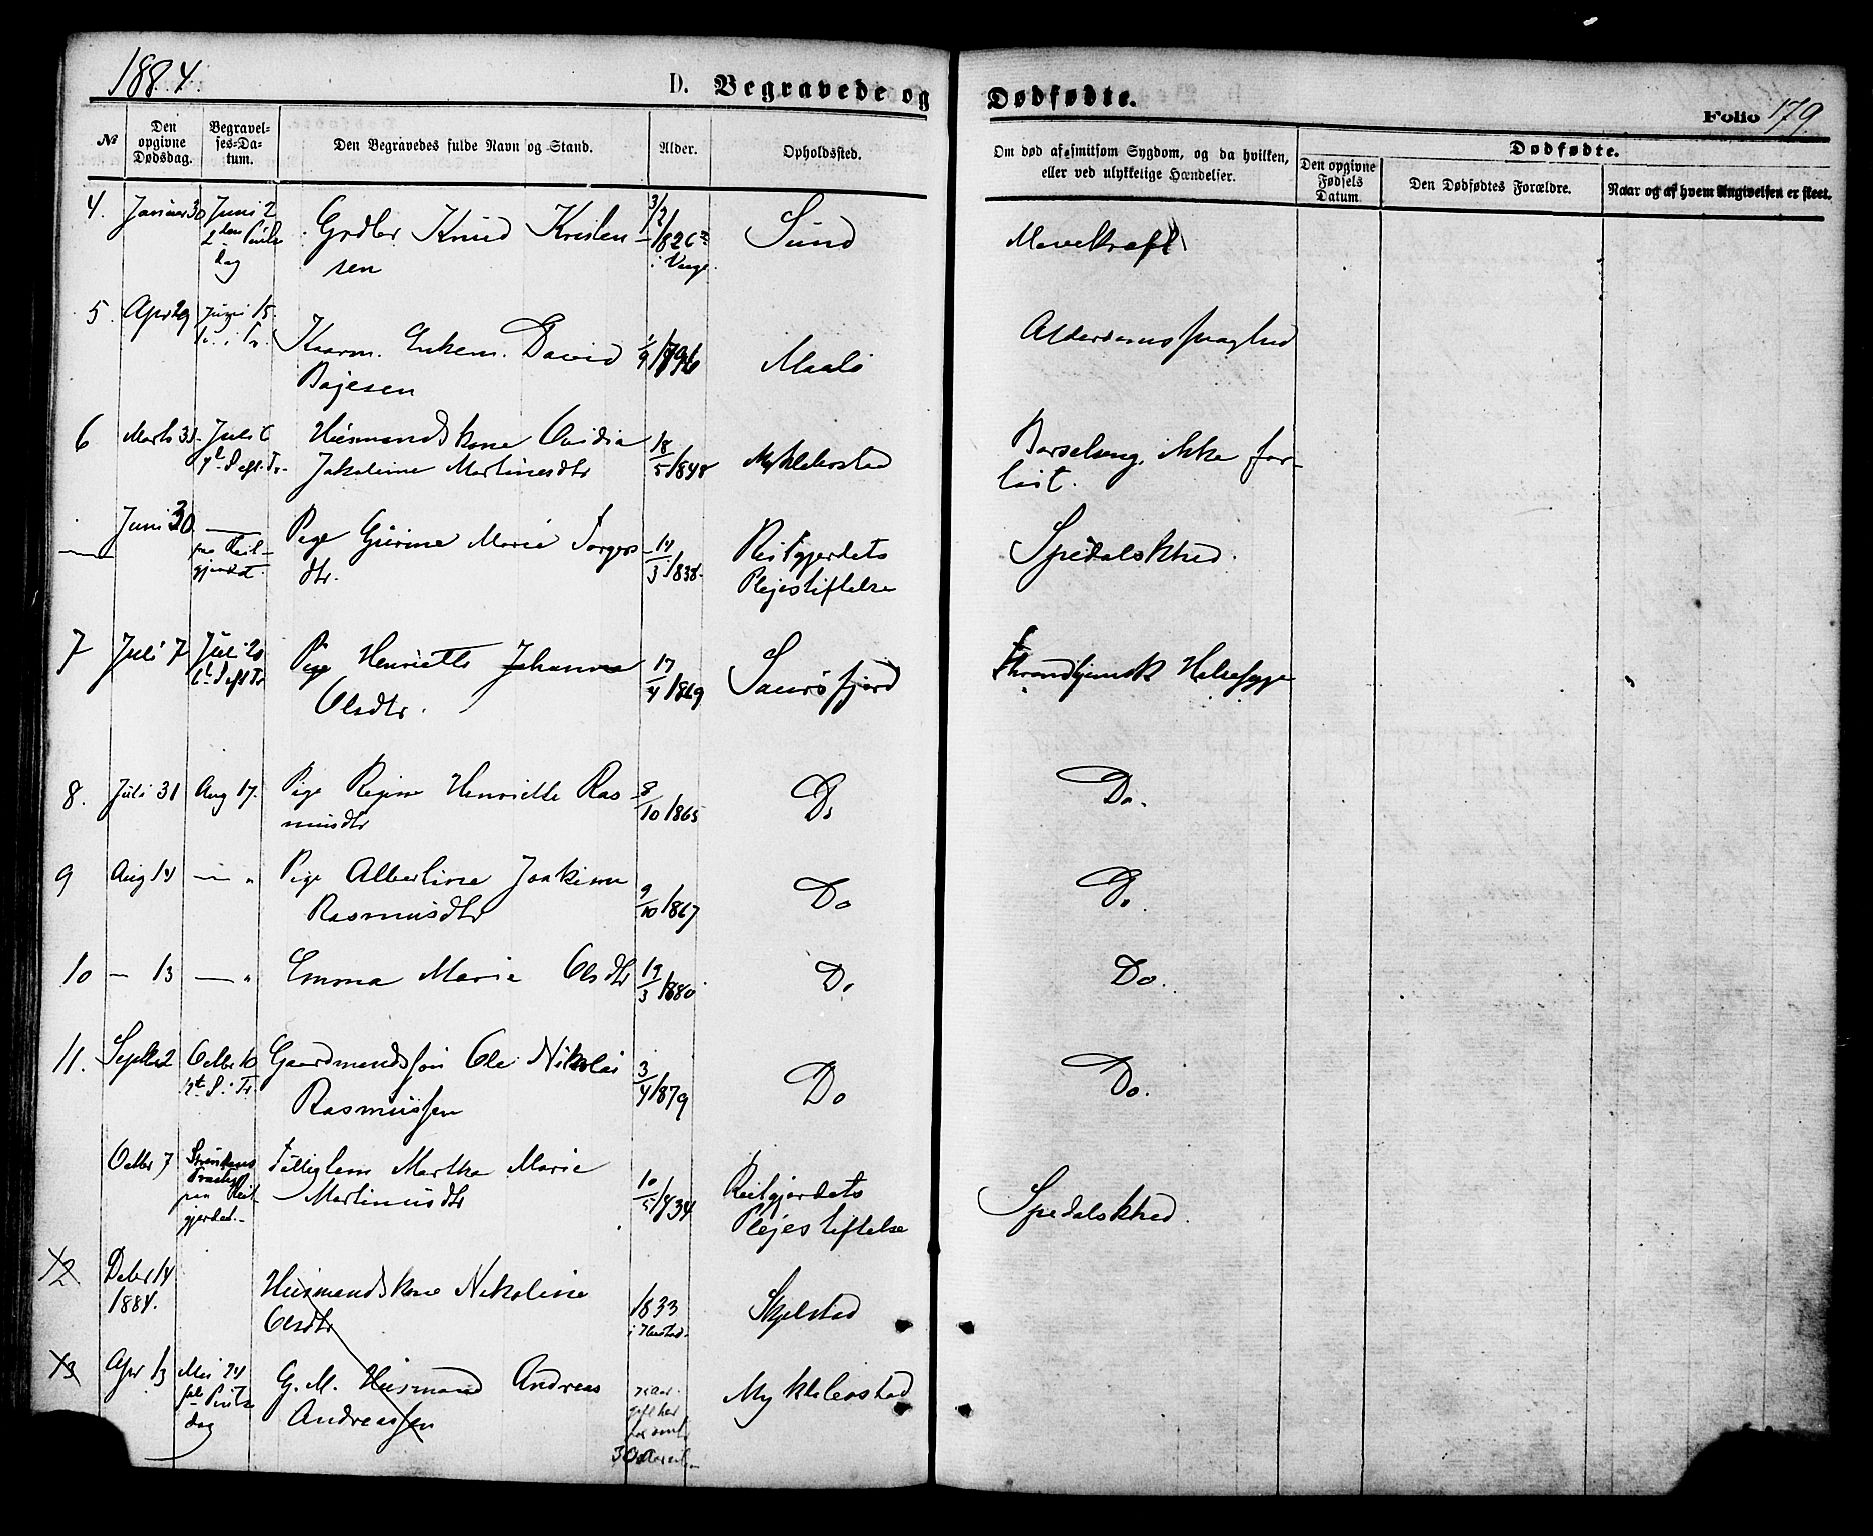 1884.
D. Begravede og Dødfødte.
Folio 179.
№
Den opgivne Dødsdag.
Begravelses-Datum.
Den Begravedes fulde Navn og Stand.
Alder.
Opholdssted.
Om død af smitsom Sygdom, og da hvilken, eller ved ulykkelige Hændelser.
Dødfødte.
Den opgivne Fødsels Datum.
Den Dødfødtes Forældre.
Naar og af hvem Angivelsen er skeet.
4. Januar 30 Juni 2 Knud Kristen 3/2 1826 Sund Mavekræft
2den dag sen
5. Apr 29 Juni 15. Kaarm. Enkem. David 1/9 1796 Maalø Alderdomssvaghed
Bajesen
6 Marts 31. Juli 6 Huusmandskone Ovidia 18/5 1848 Myklebostad Barselseng, ikke for-
Jakobine Martinesdtr løst.
Juni 30 — Pige Gurine Marie Torgers 14/3 1838. Reitgjerdets Spedalskhed.
paa Reit-
gjerdet. dtr. Plejestiftelse
7 Juli 7 Juli 20 Pige Henriette Johanna 17/4 1869 Saursfjord Throndhjemsk Halssyge
Olsdtr.
8. Juli 31 Aug 17. Pige Regine Henriette Ras- 8/10 1865 Do Do.
musdtr
9 Aug 14 — " Pige Albertine Joakime 9/10 1867 Do Do
Rasmusdtr
10 — 13 — " Emma Marie Olsdtr 19/3 1880. Do Do.
11. Septbr 2 Octbr 10 Gaardmandssøn Ole Nikolai 3/4 1879 Do Do.
Rasmussen
Octbr 7 Martha Marie 10/5 1834 Reitgjerdets Spedalskhed.
paa Reit-
gjerdet. Martinusdtr Plejestiftelse
12 Decbr 14 Huusmandskone Nikoline 1833 Skjelstad
1884. Olsdtr
13 Apr 13 Mai 24 G. M. Huusmand Andreas Myklebostad
dag Andreassen
30